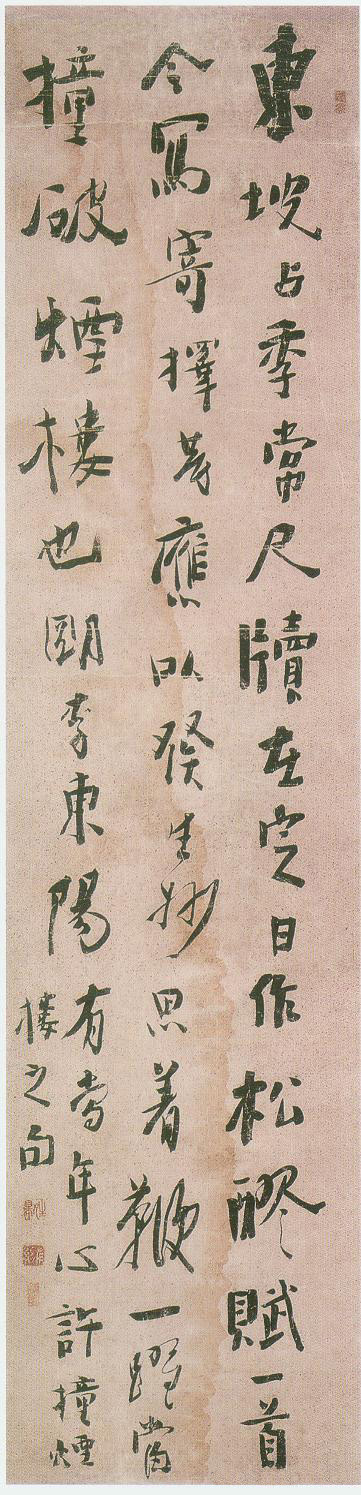 東坡与季常尺牘在定日作松醪賦一首
今寫寄擇等應以發生妙思着鞭一躍當
撞破煙樓也朙李東陽有當年心許撞煙
樓之句